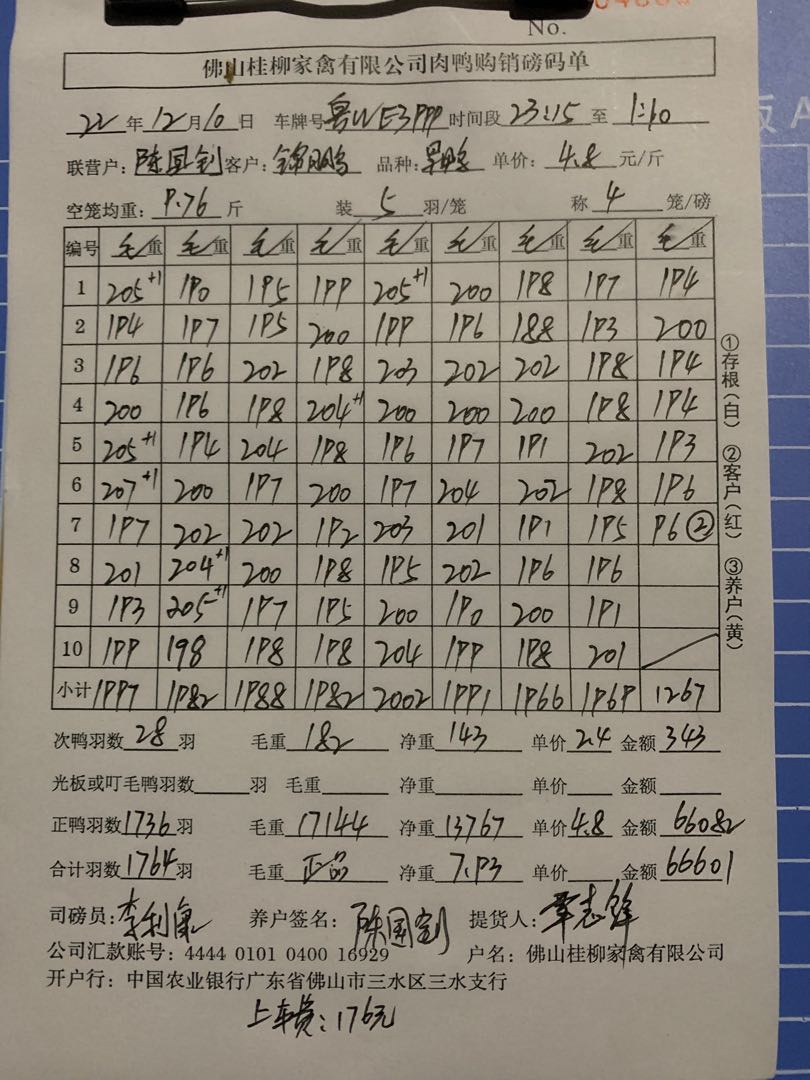 No.
佛山桂柳家禽有限公司肉鸭购销磅码单
22年12月10日 车牌号粤WE3999时间段23:15至1:10
联营户:陈国钊客户:锦鹏 品种: 单价:4.8元/斤
空笼均重:9.76斤 装5羽/笼 称4笼/磅
编号 毛/重 毛/重 毛/重 毛/重 毛/重 毛/重 毛/重 毛/重 毛/重
1 205+1 190 195 199 205+1 200 198 197 194
2 194 197 195 200 199 196 188 193 200
3 196 196 202 198 203 202 202 198 194
4 200 196 198 204+1 200 200 200 198 194
5 205+1 194 204 198 196 197 191 202 193
6 207+1 200 197 200 197 204 202 198 196
7 197 202 202 192 203 201 191 195 96②
8 201 204+1 200 198 195 202 196 196
9 193 205+1 197 195 200 190 200 191
10 199 198 198 198 204 199 198 201
小计 1997 1982 1988 1982 2002 1991 1966 1969 1267
次鸭羽数28羽 毛重182 净重143 单价2.4 金额343
光板或叮毛鸭羽数 羽 毛重 净重 单价 金额
正鸭羽数1736羽 毛重17144 净重13767 单价4.8 金额66082
合计羽数1764羽 毛重正品 净重7.93 单价 金额66601
司磅员:李利康 养户签名:陈国钊 提货人:覃志锋
公司汇款账号:4444 0101 0400 16929 户名:佛山桂柳家禽有限公司
开户行:中国农业银行广东省佛山市三水区三水支行
上车费:176元
①存根(白) ②客户(红) ③养户(黄)